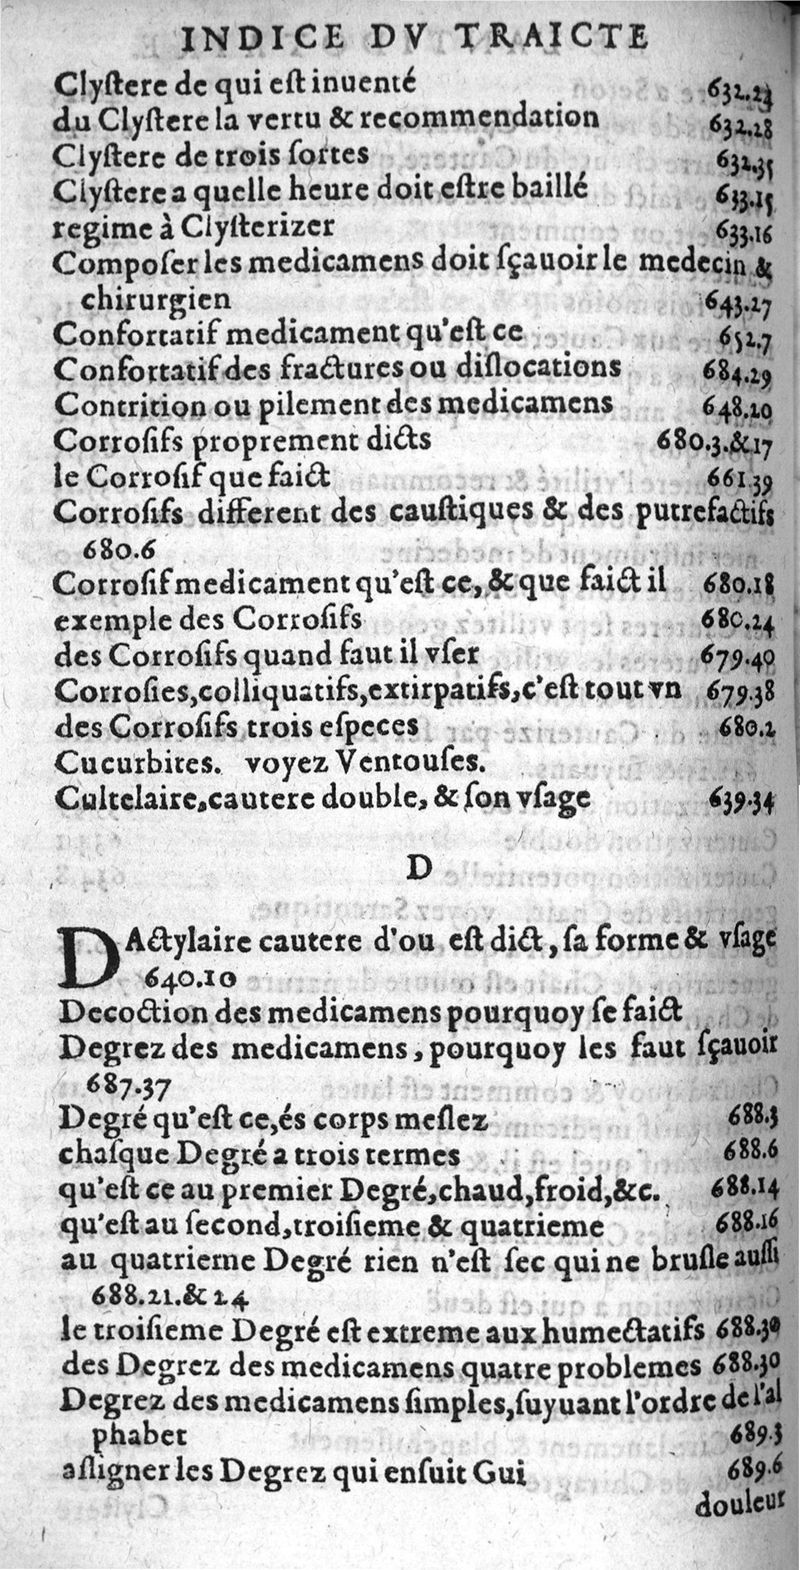 INDICE DV TRAICTE
Clyſtere de qui eſt inuenté 632.23
du Clyſtere la vertu & recommendation 632.28
Clyſtere de trois ſortes 632.35
Clyſtere a quelle heure doit eſtre baillé 633.15
regime à Clyſterizer 633.16
Compoſer les medicamens doit ſçauoir le medecin &
chirurgien 643.27
Confortatif medicament qu'eſt ce 652.7
Confortatif des fractures ou diſlocations 684.29
Contrition ou pilement des medicamens 648.20
Corroſifs proprement dicts 680.3.&17
le Corroſif que faict 661.39
Corroſifs different des cauſtiques & des putrefactifs
680.6
Corroſif medicament qu'eſt ce, & que faict il 680.18
exemple des Corroſifs 680.24
des Corroſifs quand faut il vſer 679.40
Corroſies, colliquatifs, extirpatifs, c'eſt tout vn 679.38
des Corroſifs trois eſpeces 680.2
Cucurbites. voyez Ventouſes.
Cultelaire, cautere double, & ſon vſage 639.34
D
DActylaire cautere d'ou eſt dict, ſa forme & vſage
640.10
Decoction des medicamens pourquoy ſe faict
Degrez des medicamens, pourquoy les faut ſçauoir
687.37
Degré qu'eſt ce, és corps meſlez 688.3
chaſque Degré a trois termes 688.6
qu'eſt ce au premier Degré, chaud, froid, &c. 688.14
qu'eſt au ſecond, troiſieme & quatrieme 688.16
au quatrieme Degré rien n'eſt ſec qui ne bruſle auſſi
688.21.& 24
le troiſieme Degré eſt extreme aux humectatifs 688.30
des Degrez des medicamens quatre problemes 688.30
Degrez des medicamens ſimples, ſuyuant l'ordre de l'al
phabet 689.3
aſſigner les Degrez qui enſuit Gui 689.6
douleur